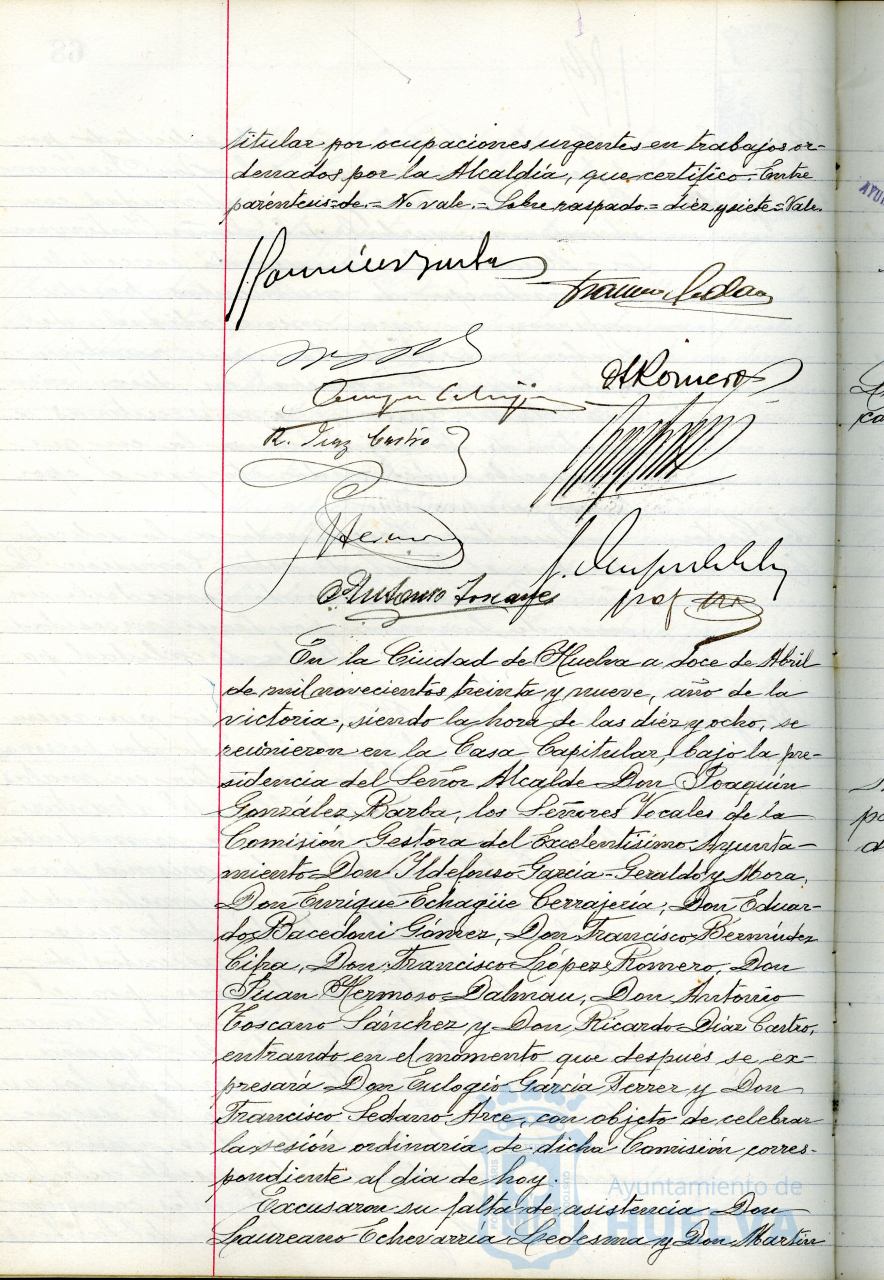 titular por ocupaciones urgentes en trabajos or-
denados por la Alcaldía, que certifico. Entre
paréntesis=de.=No vale.=Sobre raspado.=diez y siete=Vale.
A Romero
R. Diaz Castro
Antonio Toscano
En la Ciudad de Huelva a doce de Abril
de mil novecientos treinta y nueve, año de la
victoria, siendo la hora de las diez y ocho, se
reunieron en la Casa Capitular, bajo la pre-
sidencia del Señor Alcalde Don Joaquín
González Barba, los Señores Vocales de la
Comisión Gestora del Excelentísimo Ayunta-
miento Don Ildefonso García-Geraldo y Mora,
Don Enrique Echagüie Cerrajería, Don Eduar-
do Bacedoni Gómez, Don Francisco Bermúdez
Cifra, Don Francisco López Romero, Don
Juan Hermoso Dalmau, Don Antonio
Toscano Sánchez y Don Ricardo Díaz Castro,
entrando en el momento que después se ex-
presará Don Eulogio García Ferrer y Don
Francisco Sedano Arce, con objeto de celebrar
la sesión ordinaria de dicha Comisión corres-
pondiente al día de hoy.
Excusaron su falta de asistencia Don
Laureano Echevarría Ledesma y Don Martín
Ayuntamiento de
HUELVA